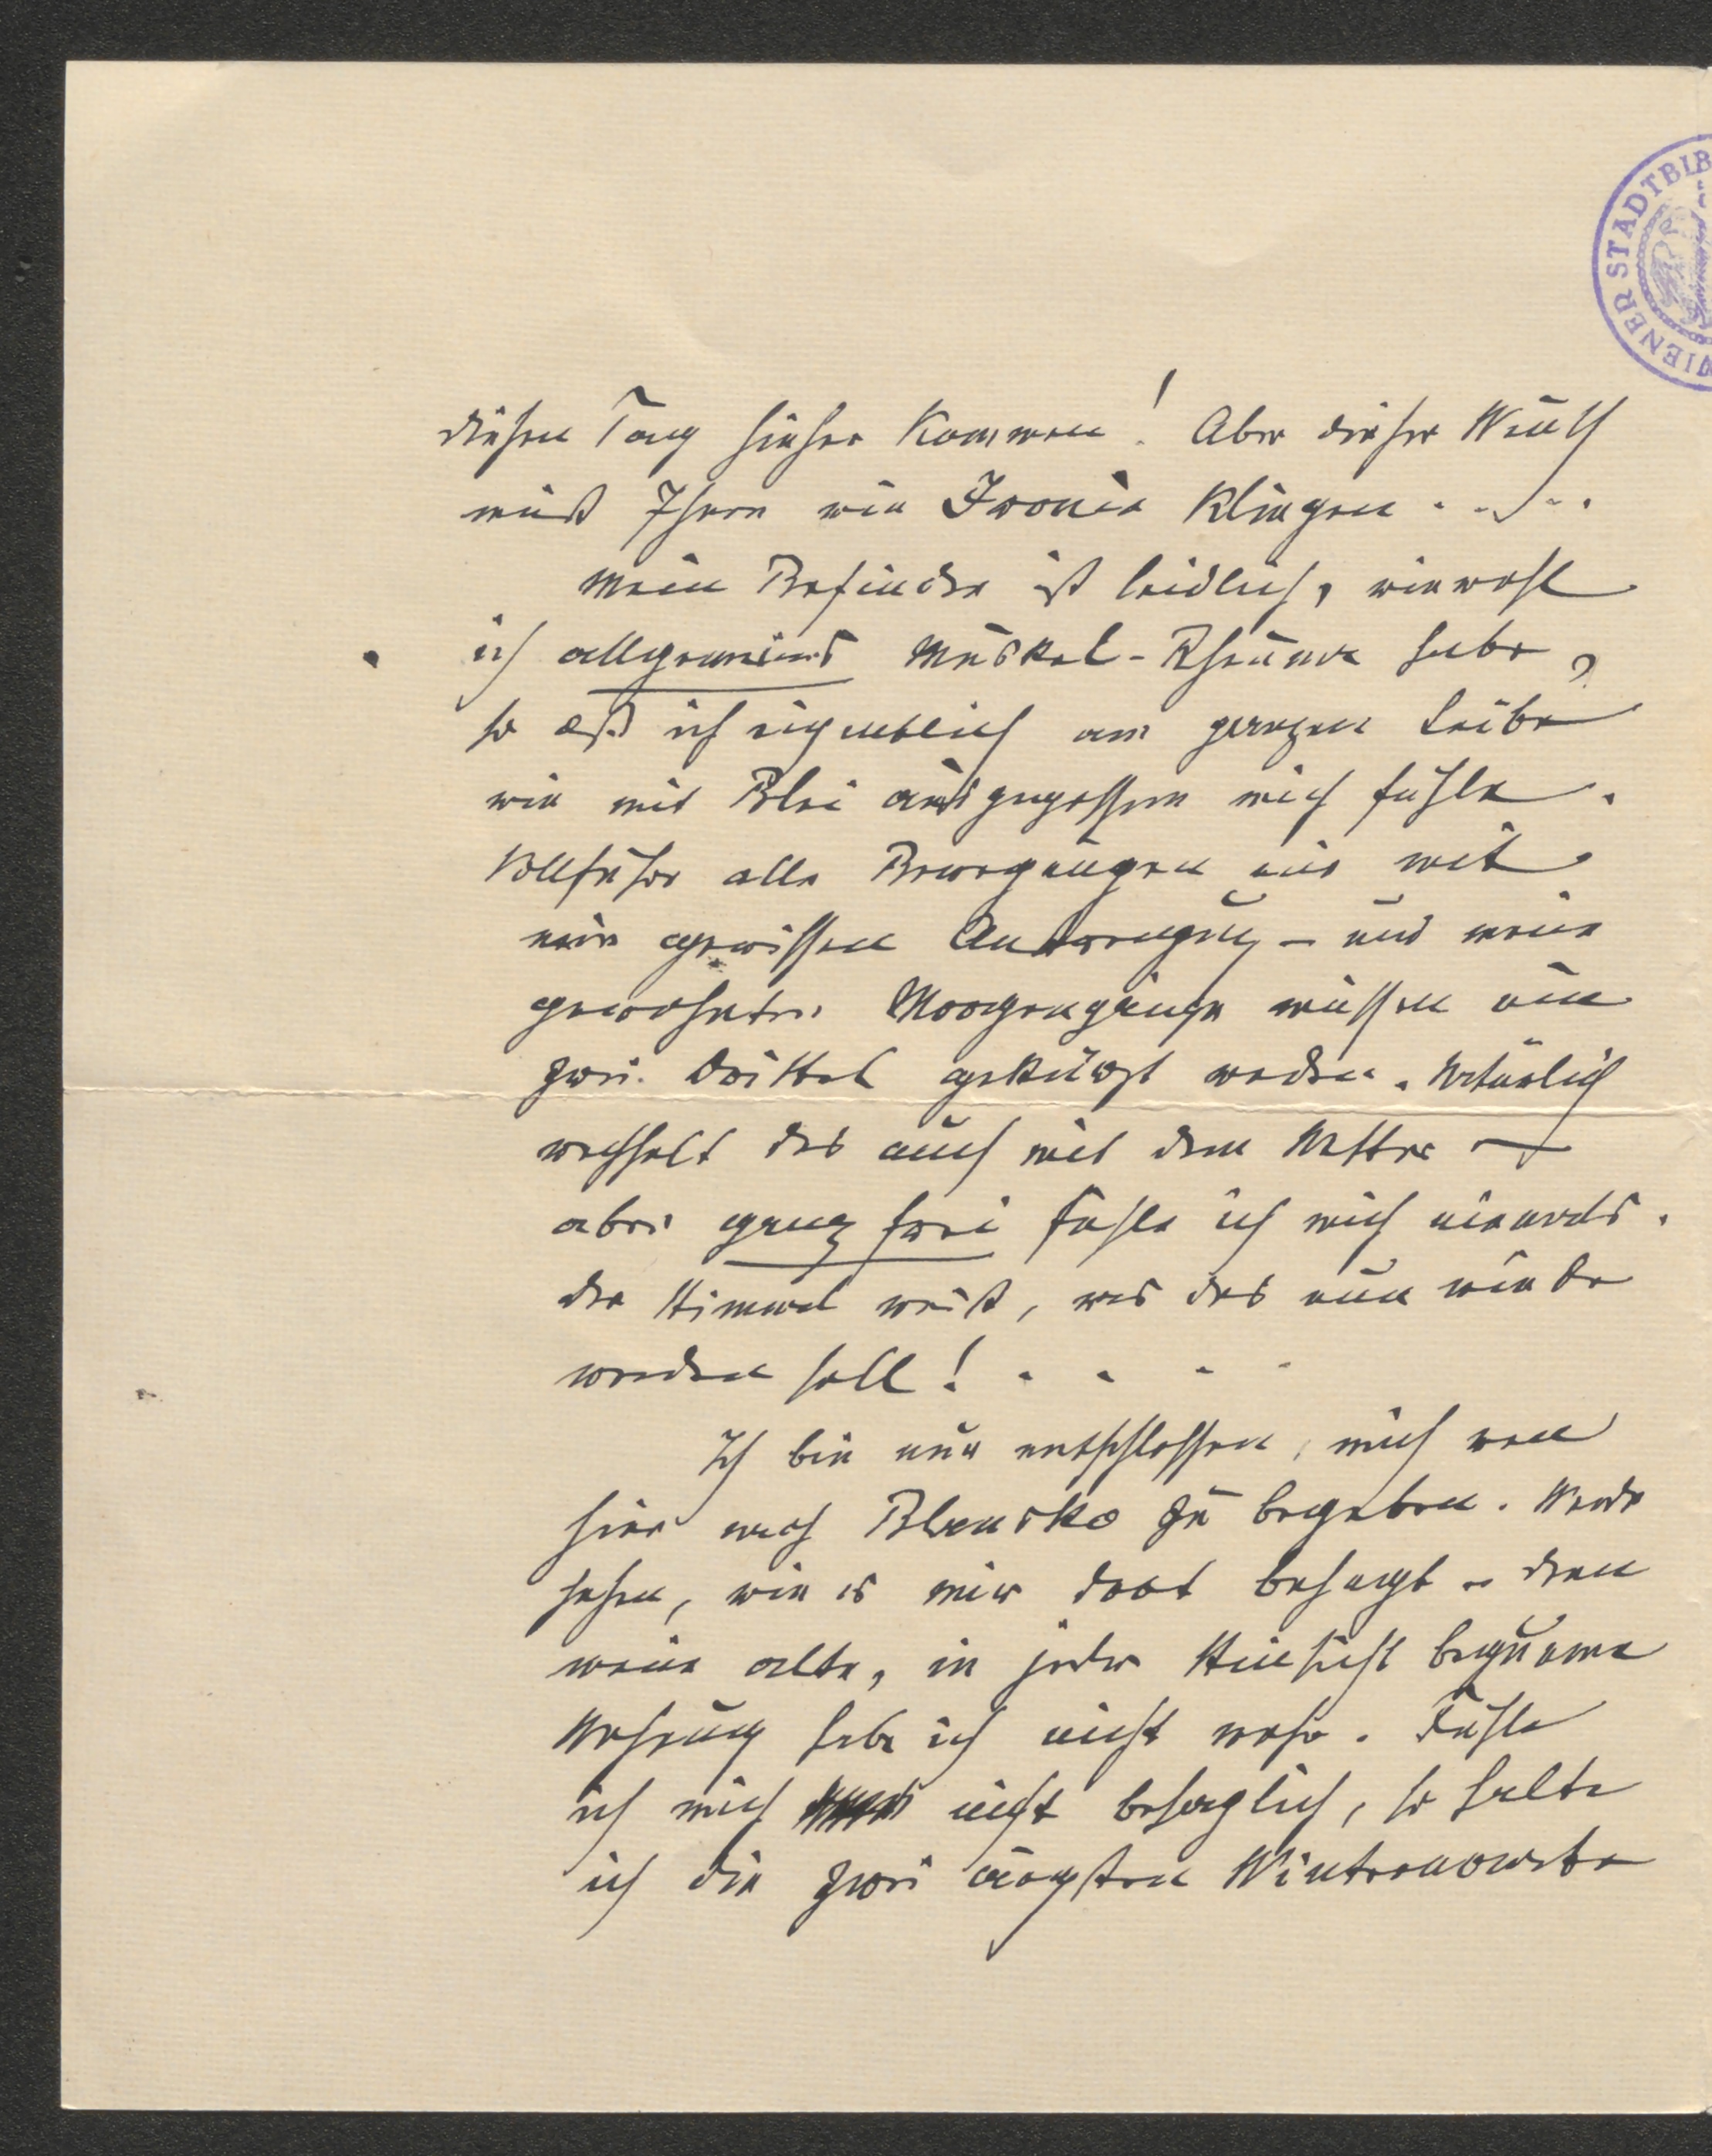 diesen Tag hieher kommen! Aber dieser Wunsch
muß Ihnen wie Ironie klingen . . . . .
Mein Befinden ist leidlich, wiewohl
ich allgemeines Muskel-Rheuma habe,
so daß ich eigentlich am ganzen Leibe
wie mit Blei ausgegossen mich fühle.
Vollführe alle Bewegungen nur mit
einer gewissen Anstrengung – und meine
gewohnten Morgengänge müssen um
zwei Drittel gekürzt werden. Natürlich
wechselt das auch mit dem Wetter –
aber ganz frei fühle ich mich niemals.
Der Himmel weiß, was das nun wieder
werden soll! . . . .
Ich bin nun entschlossen, mich von
hier nach Blansko zu begeben. Werde
sehen, wie es mir dort behagt – denn
meine alte, in jeder Hinsicht bequeme
Wohnung habe ich nicht mehr. Fühle
ich mich nicht behaglich, so halte
ich die zwei ärgsten Wintermonate
WIENER STADTBIB